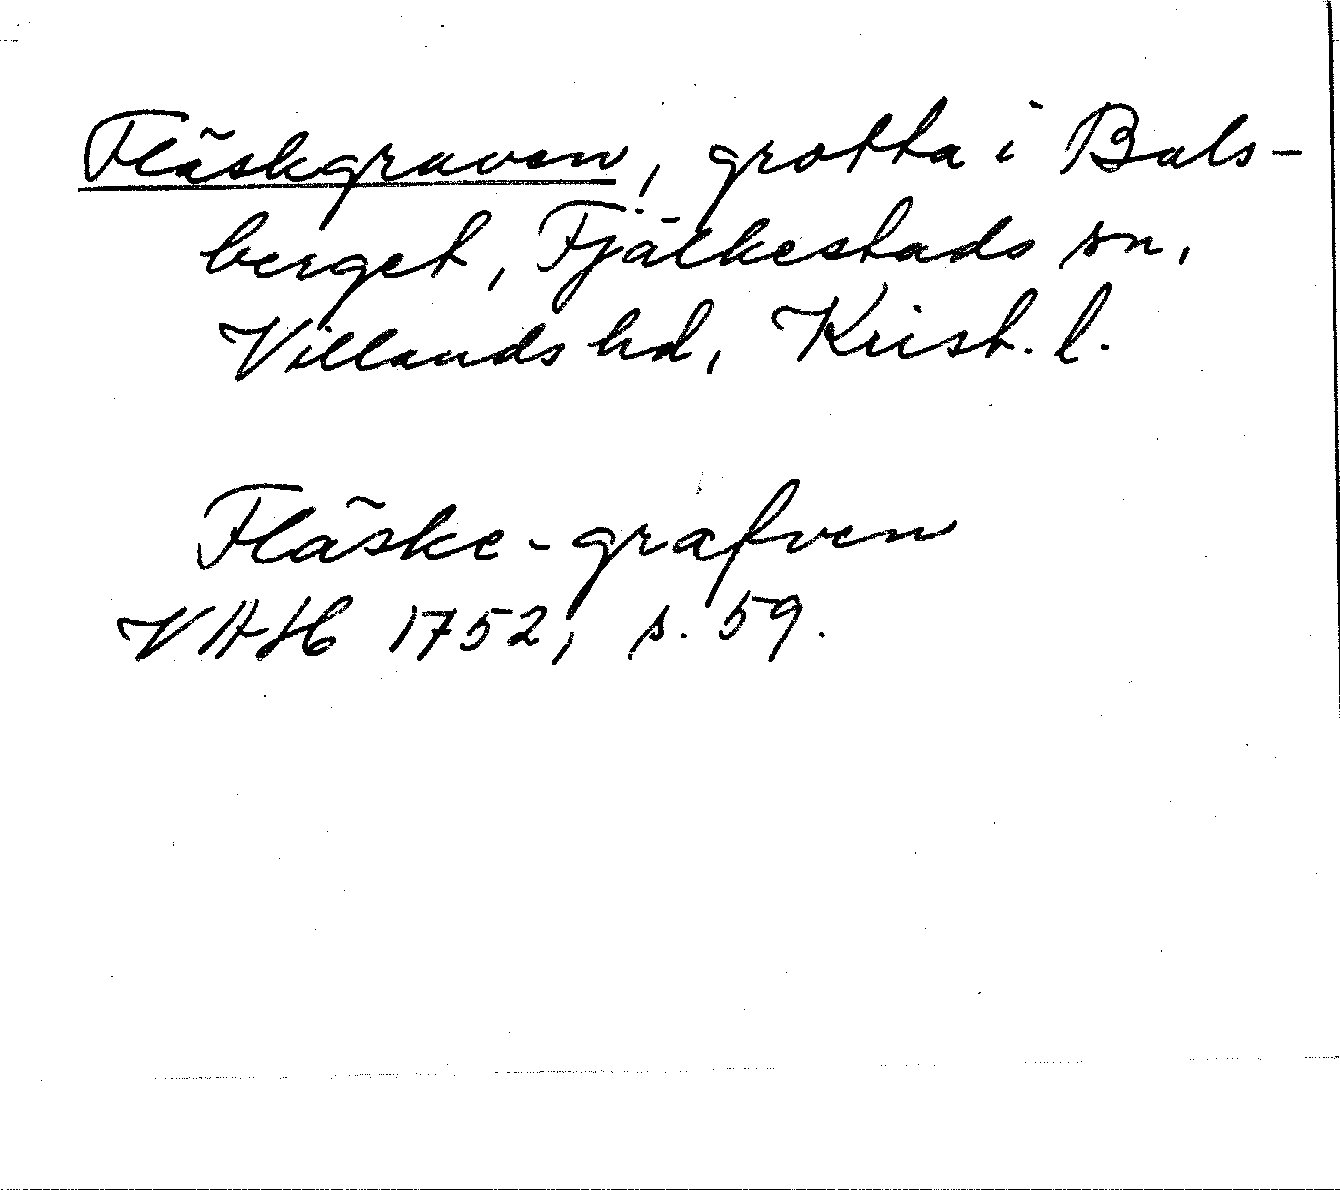 Fläskgraven, grotta i Bals-
berget, Fjälkestads sn,
Villands hd, Krist. l.
Fläske-grafven
VAH 1752, s. 59.